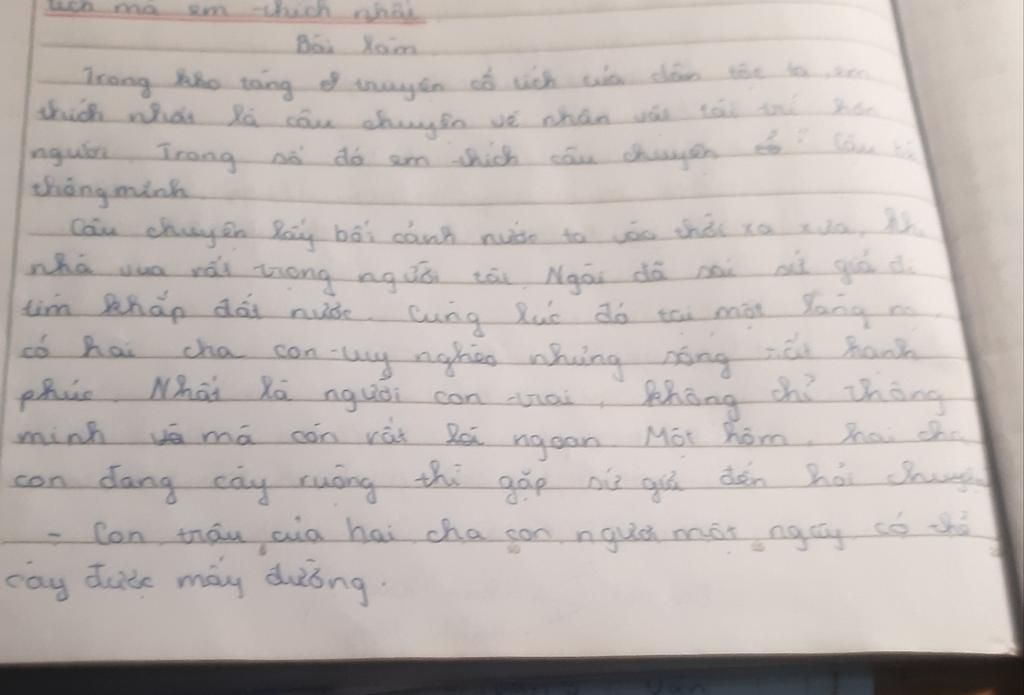 tích mà em thích nhất
Bài làm
Trong kho tàng truyện cổ tích của dân tộc ta, em
thích nhất là câu chuyện về nhân vật tài trí hơn
người. Trong số đó em thích câu chuyện cổ: Cậu bé
thông minh
Câu chuyện lấy bối cảnh nước ta vào thời xa xưa, khi
nhà vua rất trọng người tài. Ngài đã sai sứ giả đi
tìm khắp đất nước. Cùng lúc đó tại một làng nọ
có hai cha con tuy nghèo nhưng sống rất hạnh
phúc. Nhất là người con trai, không chỉ thông
minh mà còn rất ngoan. Một hôm, hai cha
con đang cày ruộng thì gặp sứ giả đến hỏi chuyện
- Con trâu của hai cha con ngươi một ngày có thể
cày được mấy đường.